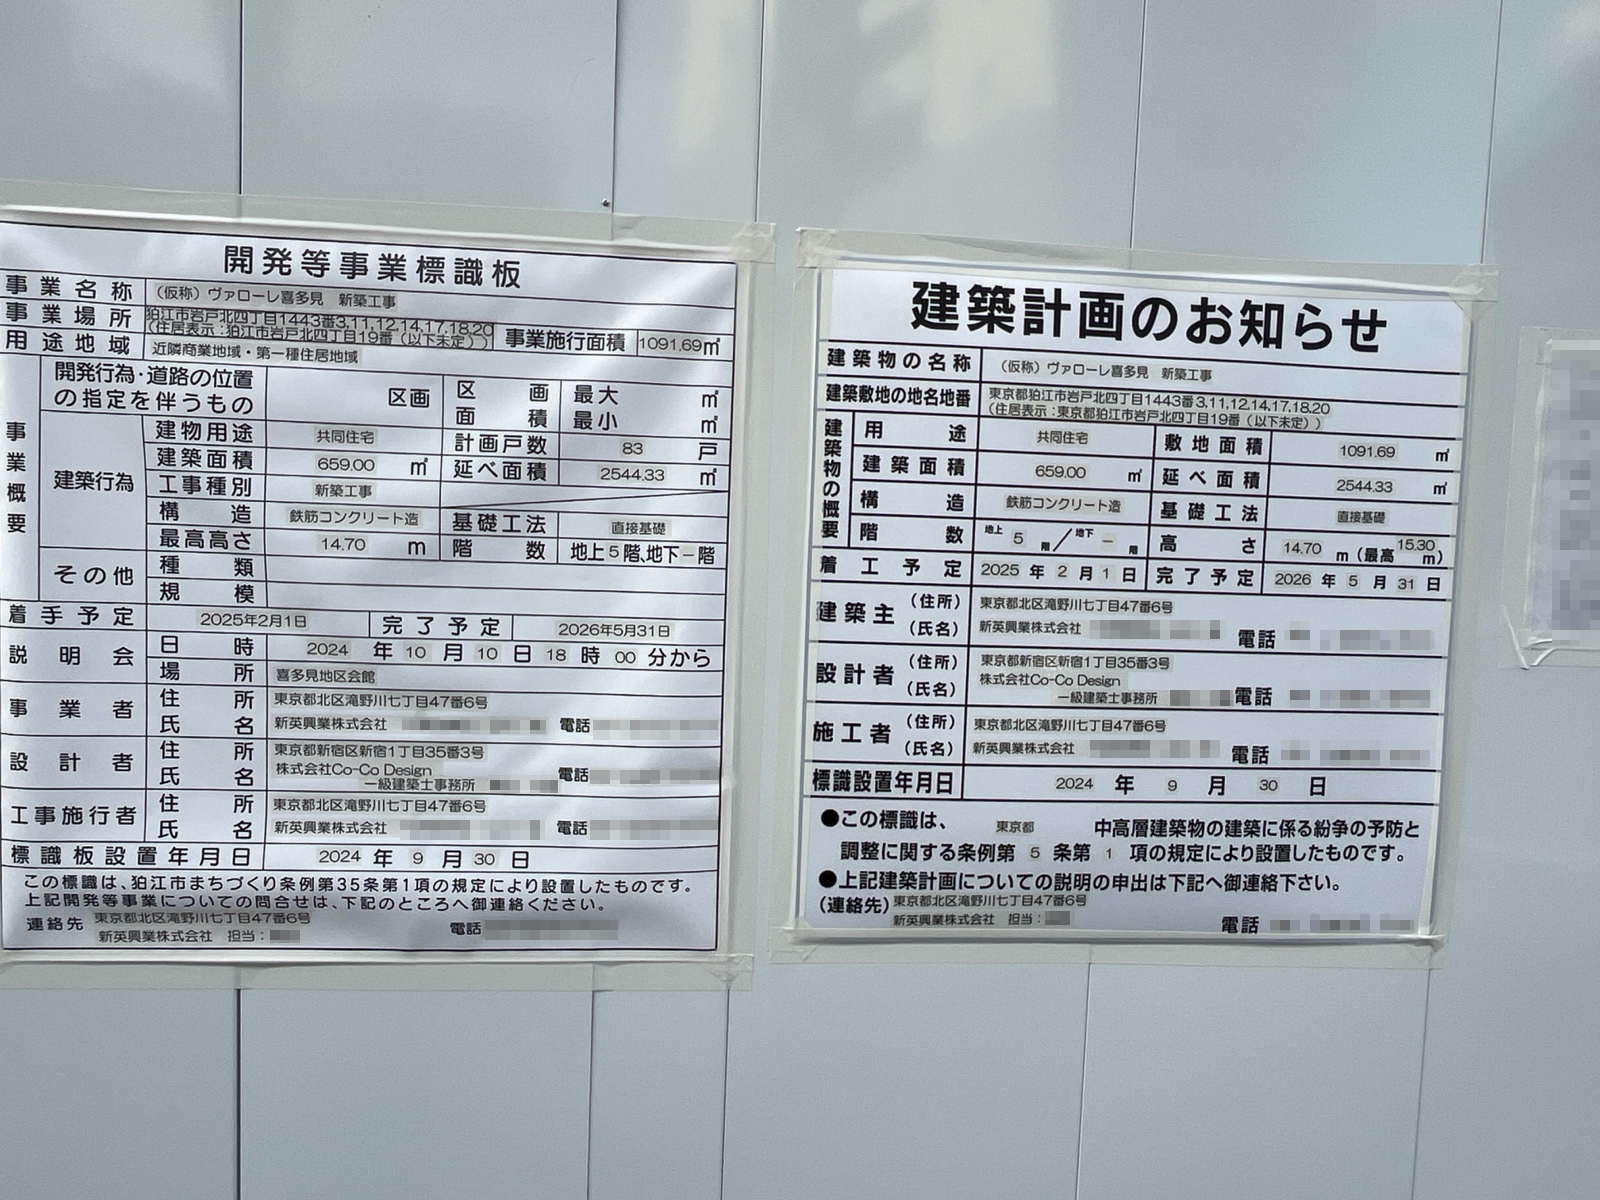 開発等事業標識板
事業名称 (仮称)ヴァローレ喜多見 新築工事
事業場所 狛江市岩戸北四丁目1443番3,11,12,14,17,18,20
(住居表示:狛江市岩戸北四丁目19番(以下未定)) 事業施行面積 1091.69㎡
用途地域 近隣商業地域・第一種住居地域
事業概要
開発行為・道路の位置の指定を伴うもの 区画 区画面積 最大 ㎡
最小 ㎡
建築行為
建物用途 共同住宅 計画戸数 83 戸
建築面積 659.00 ㎡ 延べ面積 2544.33 ㎡
工事種別 新築工事
構造 鉄筋コンクリート造 基礎工法 直接基礎
最高高さ 14.70 m 階数 地上5階、地下-階
その他 種類
規模
着手予定 2025年2月1日 完了予定 2026年5月31日
説明会 日時 2024 年 10 月 10 日 18 時 00 分から
場所 喜多見地区会館
事業者 住所 東京都北区滝野川七丁目47番6号
氏名 新英興業株式会社 電話
設計者 住所 東京都新宿区新宿1丁目35番3号
氏名 株式会社Co-Co Design
一級建築士事務所 電話
工事施行者 住所 東京都北区滝野川七丁目47番6号
氏名 新英興業株式会社 電話
標識板設置年月日 2024 年 9 月 30 日
この標識は、狛江市まちづくり条例第35条第1項の規定により設置したものです。
上記開発等事業についての問合せは、下記のところへ御連絡ください。
連絡先 東京都北区滝野川七丁目47番6号
新英興業株式会社 担当: 電話
建築計画のお知らせ
建築物の名称 (仮称)ヴァローレ喜多見 新築工事
建築敷地の地名地番 東京都狛江市岩戸北四丁目1443番3,11,12,14,17,18,20
(住居表示:東京都狛江市岩戸北四丁目19番(以下未定))
建築物の概要
用途 共同住宅 敷地面積 1091.69 ㎡
建築面積 659.00 ㎡ 延べ面積 2544.33 ㎡
構造 鉄筋コンクリート造 基礎工法 直接基礎
階数 地上 5 階/地下 - 階 高さ 14.70 m(最高 15.30 m)
着工予定 2025 年 2 月 1 日 完了予定 2026 年 5 月 31 日
建築主 (住所) 東京都北区滝野川七丁目47番6号
(氏名) 新英興業株式会社 電話
設計者 (住所) 東京都新宿区新宿1丁目35番3号
(氏名) 株式会社Co-Co Design
一級建築士事務所 電話
施工者 (住所) 東京都北区滝野川七丁目47番6号
(氏名) 新英興業株式会社 電話
標識設置年月日 2024 年 9 月 30 日
●この標識は、 東京都 中高層建築物の建築に係る紛争の予防と
調整に関する条例第 5 条第 1 項の規定により設置したものです。
●上記建築計画についての説明の申出は下記へ御連絡下さい。
(連絡先) 東京都北区滝野川七丁目47番6号
新英興業株式会社 担当: 電話